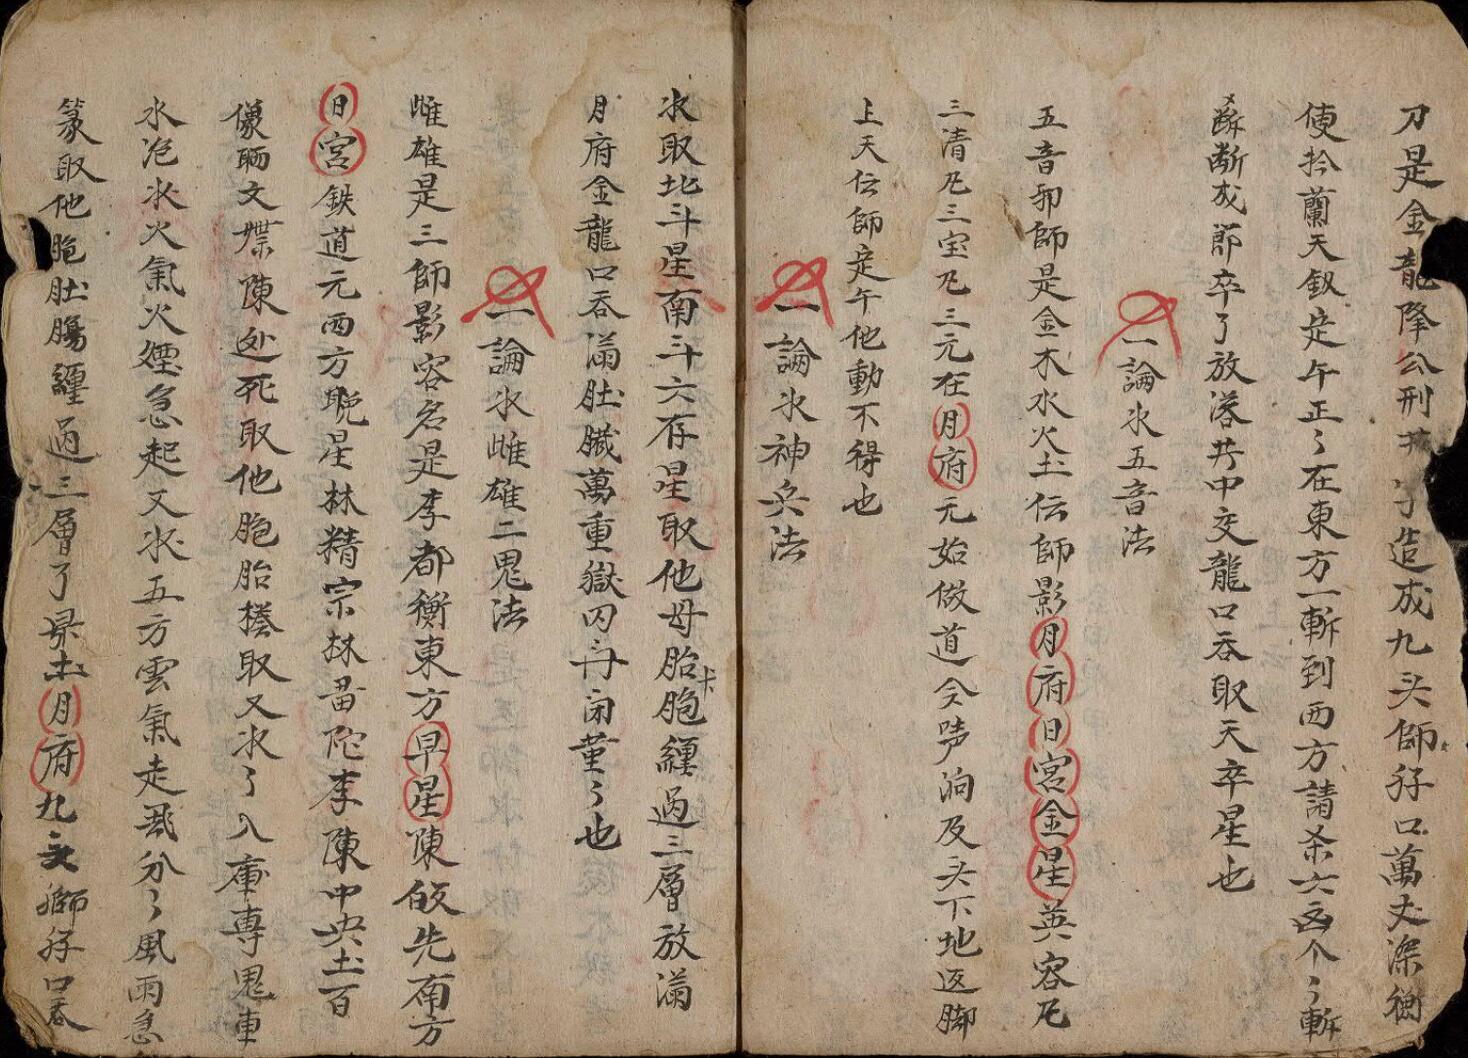 刀是金龍降公刑共 字造成九头師仔口萬丈深衡
使拎蘭天釵㝎午正〻在東方一斬到西方請杀六囟个〻斬
斷断成節卒了放落共中交龍口吞取天卒星也
一論氷五音法
五音邪師是金木水火土伝師影月府日宮金星英容凢
三清凢三宝凢三元在月府元始做道令哮洞及头下地返脚
上天伝師㝎午他動不得也
一論氷神兵法
氷取北斗星南斗六存星取他母胎胞纏過三層放滿
月府金龍口吞滿肚臟萬重獄囚 闭董〻也
一論氷雌雄二鬼法
雌雄是三師影容名是李都衡東方早星陳 先南方
日宮鉄道元西方晚星林精宗林畄陀李陳中央土百
儂晒文堞陳处死取他胞胎 取又氷了入庫專鬼車
氷冺氷火氣火煙急起又氷五方雲氣走 分〻風雨急
篆取他胞肚膓纏過三層了杲土月府九 獅仔口吞